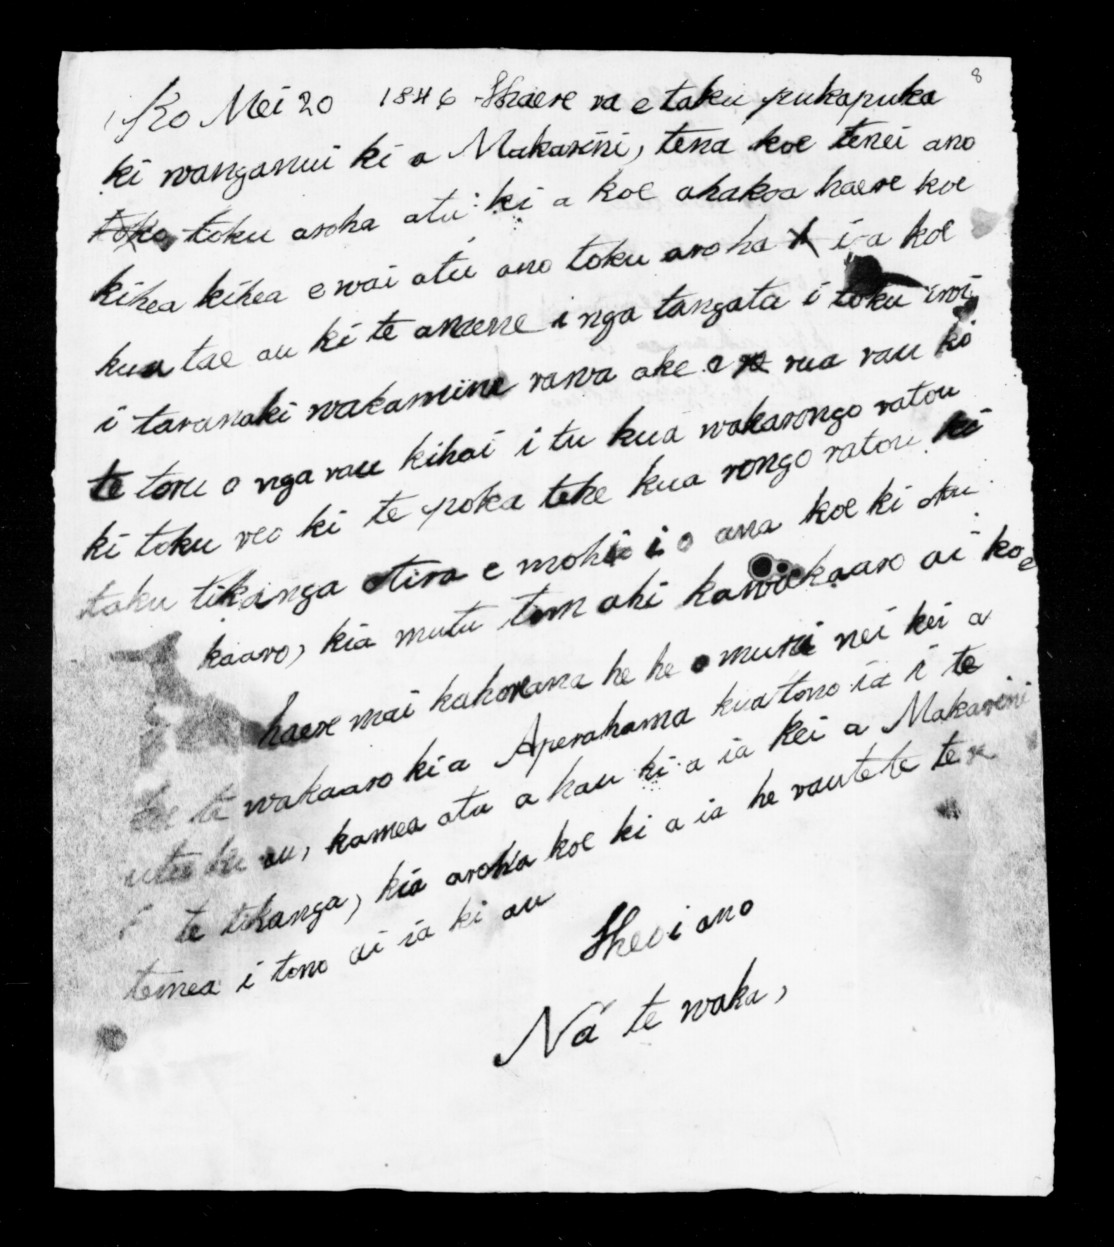 8
Ko Mei 20 1846 Haere ra e taku pukapuka
ki wanganui ki a Makarini, tena koe tenei ano
toku toku aroha atu ki a koe ahakoa haere koe
kihea kihea e wai atu ano toku aroha i a koe
kua tae au ki te amene i nga tangata i toku iwi
i taranaki wakamine rawa ake e rua rau ki
te toru o nga rau kihai i tu kua wakarongo ratou
ki toku reo ki te poka tehe kua rongo ratou ki
taku tikanga otira e mohio ana koe ki oku
kaaro, kia mutu tem ahi kawakaaro ai koe
haere mai kahorana he he o muri nei kei a
te wakaaro ki a Aperahama kua tono ia i te
utu ki au, kamea atu a hau ki a ia kei a Makarini
te tikanga, kia aroha koe ki a ia he rautete te
temea i tono ai ia ki au
Heoi ano
Na te waka,